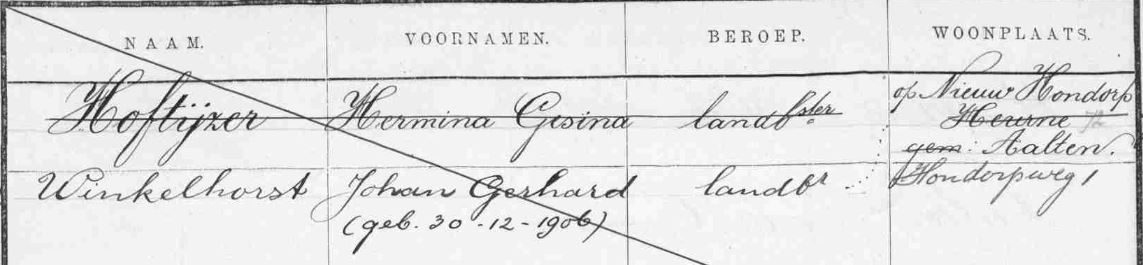 NAAM. VOORNAMEN. BEROEP. WOONPLAATS.
op Nieuw Hondorp
Hoftijzer Hermina Gesina landbster Heurne 72
gem: Aalten.
Winkelhorst Johan Gerhard landbr Hondorpweg 1
(geb. 30-12-1906)